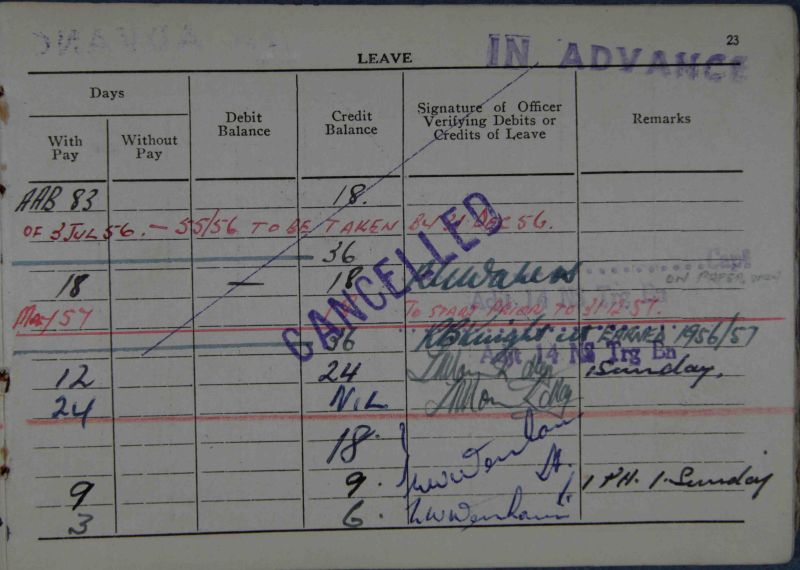 23
IN ADVANCE
LEAVE
Days
With Pay
Without Pay
Debit Balance
Credit Balance
Signature of Officer Verifying Debits or Credits of Leave
Remarks
AAB 83 18.
OF 3 JUL 56. — 55/56 TO BE TAKEN BY 31 DEC 56.
36
18 — 18 Capt
ON PAPER
May 57 TO START PRIOR TO 31-12-57.
36 EARNED 1956/57
Adjt 14 NS Trg Bn
12 24 1 Sunday.
24 NIL
CANCELLED
18.
9 9. 1 P.H. 1. Sunday
3 6.